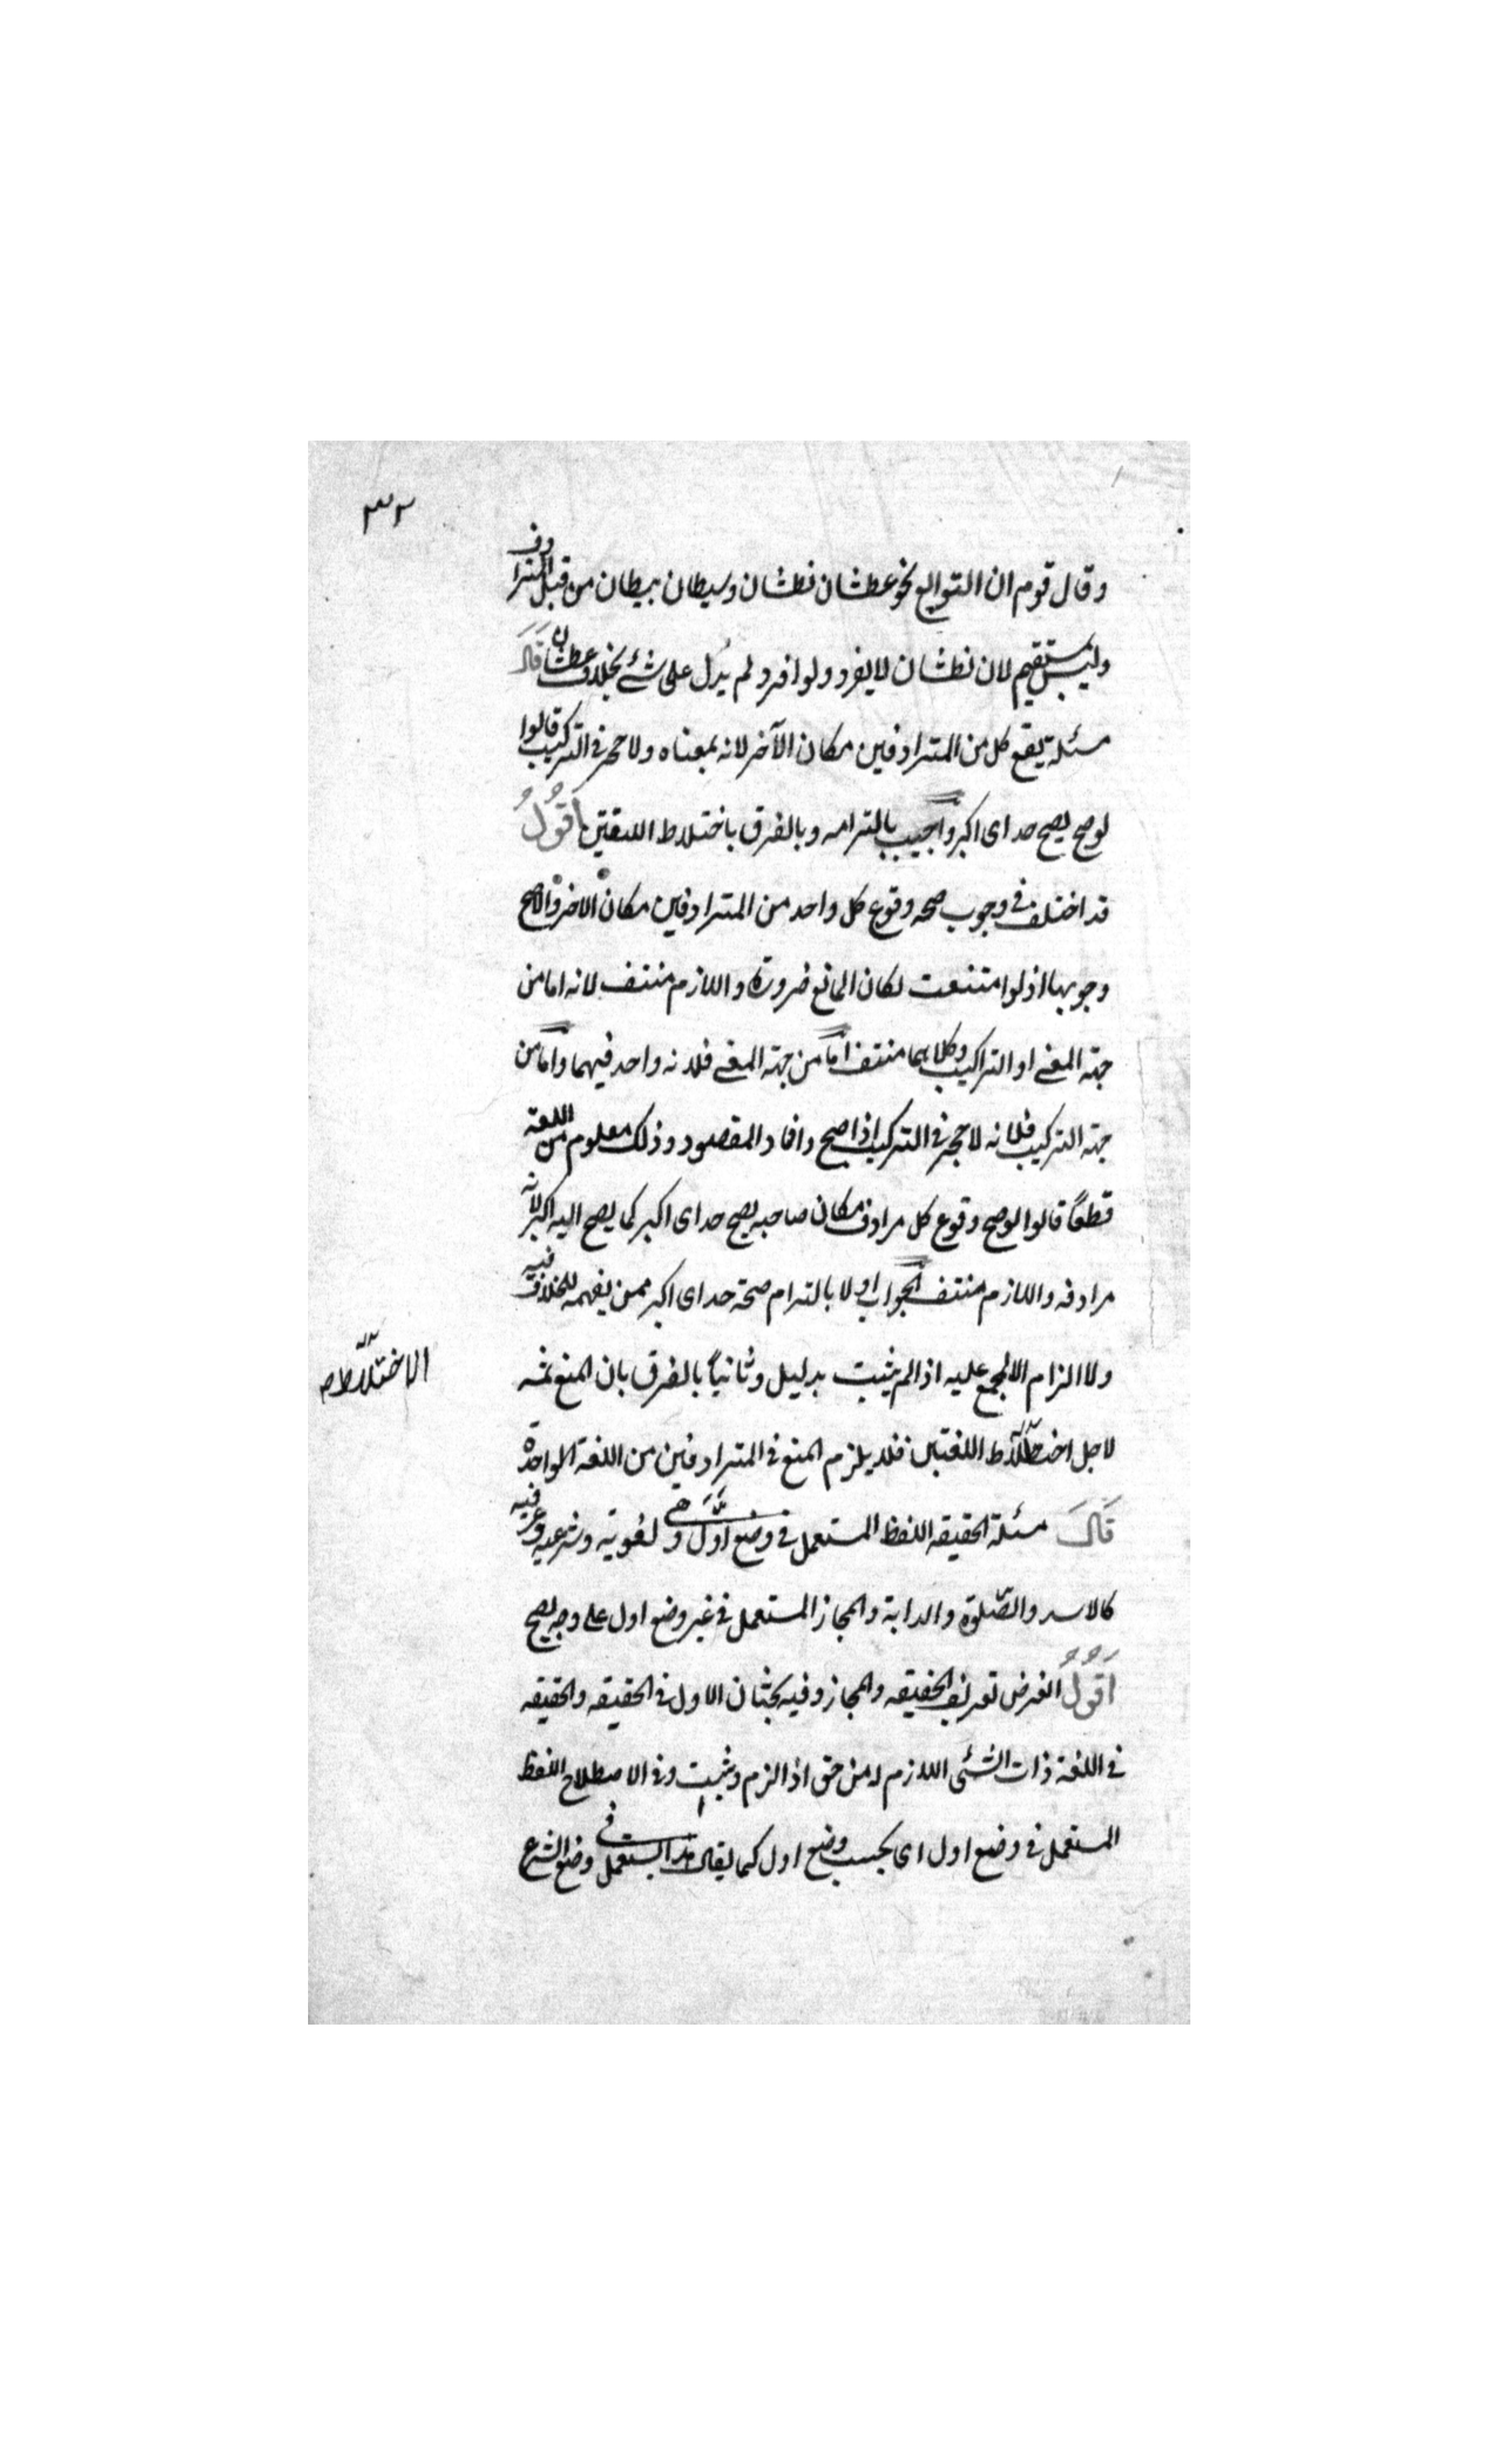 ٣٢
وقال قوم ان التوابع نحو عطشان نطشان وشيطان بيطان من قبل المترادف
وليس بمستقيم لان نطشان لا يفرد ولو افرد لم يدل على شئ بخلاف عطشان قال
مسئلة يقع كل من المترادفين مكان الآخر لانه بمعناه ولا حجر في التركيب قالوا
لو صح يصح خداى اكبر واجيب بالتزامه وبالفرق باختلاط اللغتين اقول
قد اختلف في وجوب صحة وقوع كل واحد من المترادفين مكان الاخر والاصح
وجوبها اذ لو امتنعت لكان المانع ضرورة واللازم منتف لانه اما من
جهة المعنى او التركيب وكلاهما منتف اما من جهة المعنى فلانه واحد فيهما واما من
جهة التركيب فلانه لا حجر في التركيب اذا صح وافاد المقصود وذلك معلوم من اللغة
قطعًا قالوا لو صح وقوع كل مرادف مكان صاحبه يصح خداى اكبر كما يصح الله اكبر لانه
مرادفه واللازم منتف الجواب اولا بالتزام صحة خداى اكبر ممن يفهمه للخلاف فيه
ولا الزام الا بمجمع عليه اذا لم يثبت بدليل وثانيًا بالفرق بان المنع ثمه
الاختلاط
لاجل اختلاط اللغتين فلا يلزم المنع في المترادفين من اللغة الواحدة
قال مسئلة الحقيقة اللفظ المستعمل في وضع اول وهي لغوية وشرعية وعرفية
كالاسد والصلوة والدابة والمجاز المستعمل في غير وضع اول على وجه يصح
اقول الغرض تعريف الحقيقة والمجاز وفيه بحثان الاول في الحقيقة والحقيقة
في اللغة ذات الشئ اللازم له من حق اذا لزم وثبت وفي الاصطلاح اللفظ
المستعمل في وضع اول اى بحسب وضع اول كما يقال هذا المستعمل في وضع الشرع